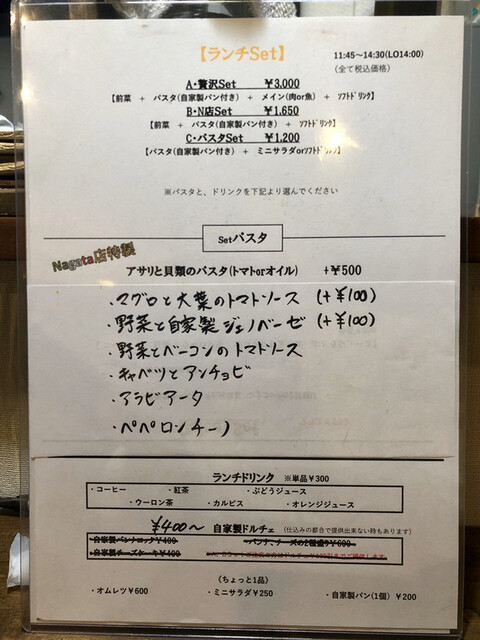 【ランチSet】
11:45～14:30(LO14:00)
(全て税込価格)
A・贅沢Set ¥3,000
【前菜 + パスタ(自家製パン付き) + メイン(肉or魚) + ソフトドリンク】
B・N店Set ¥1,650
【前菜 + パスタ(自家製パン付き) + ソフトドリンク】
C・パスタSet ¥1,200
【パスタ(自家製パン付き) + ミニサラダorソフトドリンク】
※パスタと、ドリンクを下記より選んでください
Setパスタ
Nagata店特製
アサリと貝類のパスタ(トマトorオイル) +¥500
・マグロと大葉のトマトソース (+¥100)
・野菜と自家製ジェノベーゼ (+¥100)
・野菜とベーコンのトマトソース
・キャベツとアンチョビ
・アラビアータ
・ペペロンチーノ
ランチドリンク ※単品¥300
・コーヒー ・紅茶 ・ぶどうジュース
・ウーロン茶 ・カルピス ・オレンジジュース
¥400～ 自家製ドルチェ (仕込みの都合で提供出来ない時もあります)
・自家製パンナコッタ¥400
・パンナ、チーズの2種盛り¥600
・自家製チーズケーキ¥400
(ちょっと1品)
・オムレツ¥600 ・ミニサラダ¥250 ・自家製パン(1個) ¥200